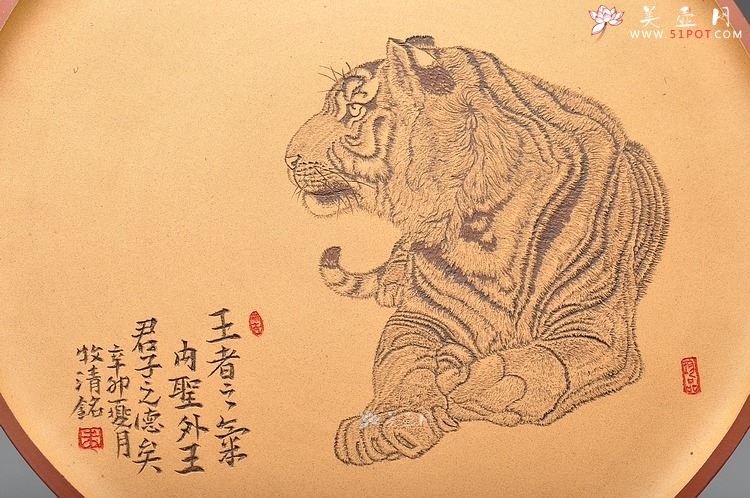 美壶月
WWW.51POT.COM
王者之氣
內聖外王
君子之德矣
辛卯夏月
牧清銘